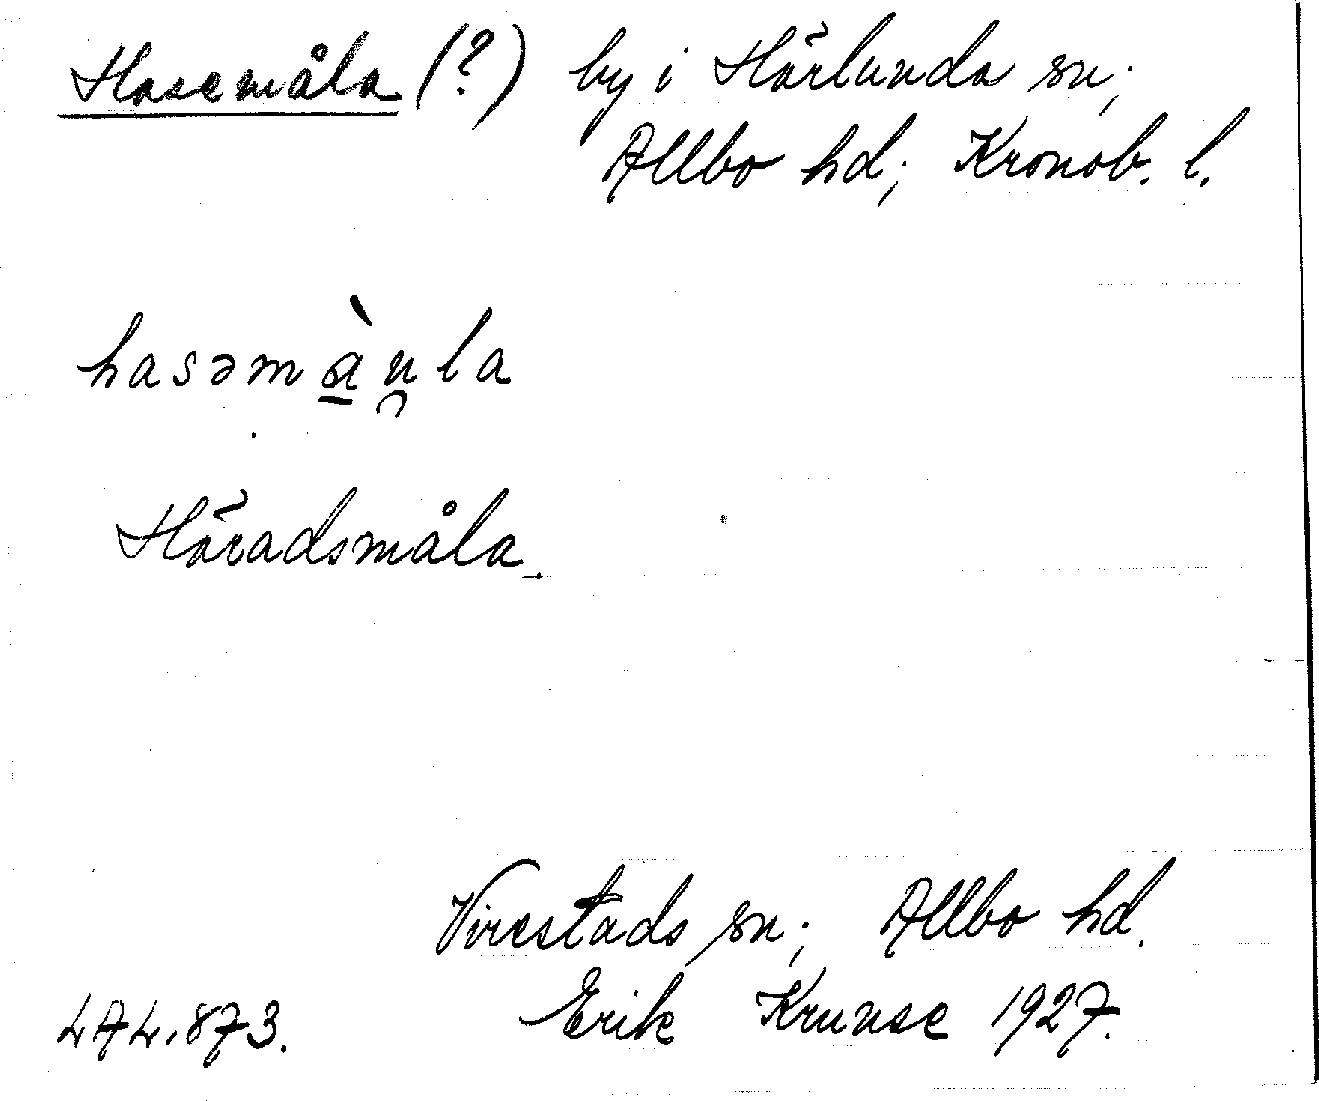 Hasemåla (?) by i Härlunda sn;
Allbo hd; Kronob. l.
hasəmà̠u̯la
Häradsmåla.
Virestads sn; Allbo hd.
474.873. Erik Krunse 1927.